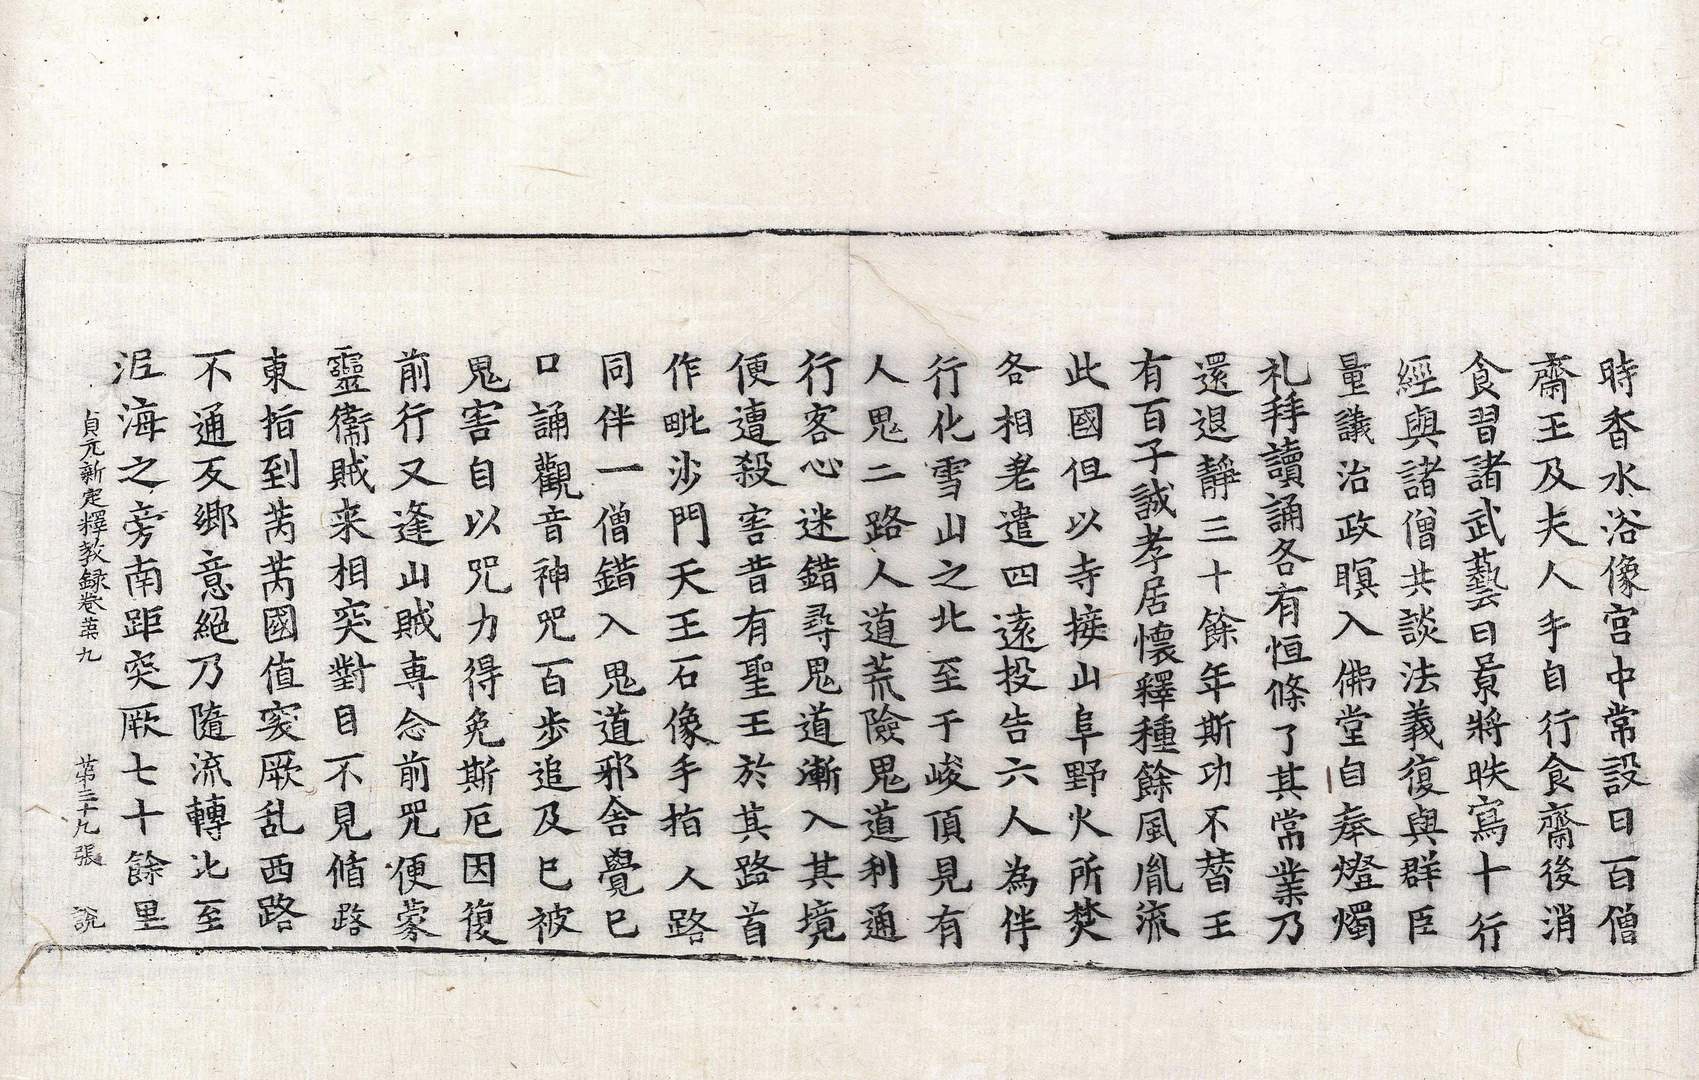 時香水浴像宮中常設日百僧
齋王及夫人手自行食齋後消
食習諸武藝日景將昳寫十行
經與諸僧共談法義復與群臣
量議治政暝入佛堂自奉燈燭
礼拜讀誦各有恒條了其常業乃
還退靜三十餘年斯功不替王
有百子誠孝居懷釋種餘風胤流
此國但以寺接山阜野火所焚
各相差遣四遠投告六人為伴
行化雪山之北至于峻頂見有
人鬼二路人道荒險鬼道利通
行客心迷錯尋鬼道漸入其境
便遭殺害昔有聖王於其路首
作毗沙門天王石像手指人路
同伴一僧錯入鬼道邪舍覺已
口誦觀音神咒百步追及已被
鬼害自以咒力得免斯厄因復
前行又逢山賊専念前咒便蒙
靈衛賊来相突對目不見循路
東指到芮芮國值突厥乱西路
不通反鄉意絕乃隨流轉北至
泥海之旁南距突厥七十餘里
貞元新定釋教録卷苐九 苐三十九張 說